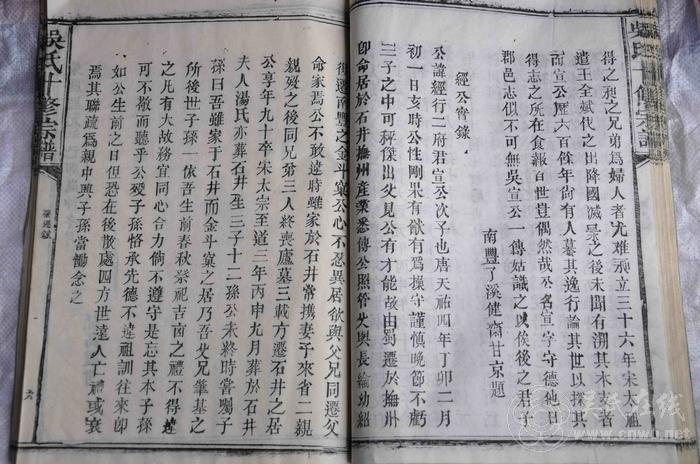 得之昶之兄弟爲婦人者尤难頑立三十六年宋太祖
遣王全斌代之出降國滅景之後未聞有溯其本者
而宣公歷六百餘年尚有人墓其逸行論其世以採其
得志之所在食報百世豈偶然哉公名宣字守德他日
郡邑志似不可無吳宣公一傳姑識之以俟後之君子
南豐了溪健齋甘京題
經公實錄
公諱經行二府君宣公次子也唐天祐四年丁卯二月
初一日亥時公性剛果有猷有爲操守謹慎晚節不虧
三子之中可秤傑出父見公有才能故由蜀遷於撫州
卽命居於石井撫州產業悉傳公照管父與長綸幼紹
後遷南豐之金斗窠公心不忍異居欲與父兄同遷父
命家焉公不敢違時雖家於石井常携妻子來省二親
親歿之後同兄弟三人終喪廬墓三載方還石井之居
公享年九十卒宋太宗至道三年丙申九月葬於石井
夫人湯氏亦葬石井生三子十二孫公未終時當囑子
孫曰吾雖家于石井而金斗窠之居乃吾父兄肇基之
所後世子孫一依吾生前春秋祭祀吉凶之禮不得違
之凡有大故務宜同心合力倘不遵守是忘其本子孫
可不撤而聽乎公歿子孫恪承先德不違祖訓往來卽
如公生前之日但恐在後散處四方世遠人亡禮或衰
焉其聯疏爲親中興子孫當慟念之
吳氏十修宗譜
六
吳氏十修宗譜
吴氏在线
www.cnwu.net